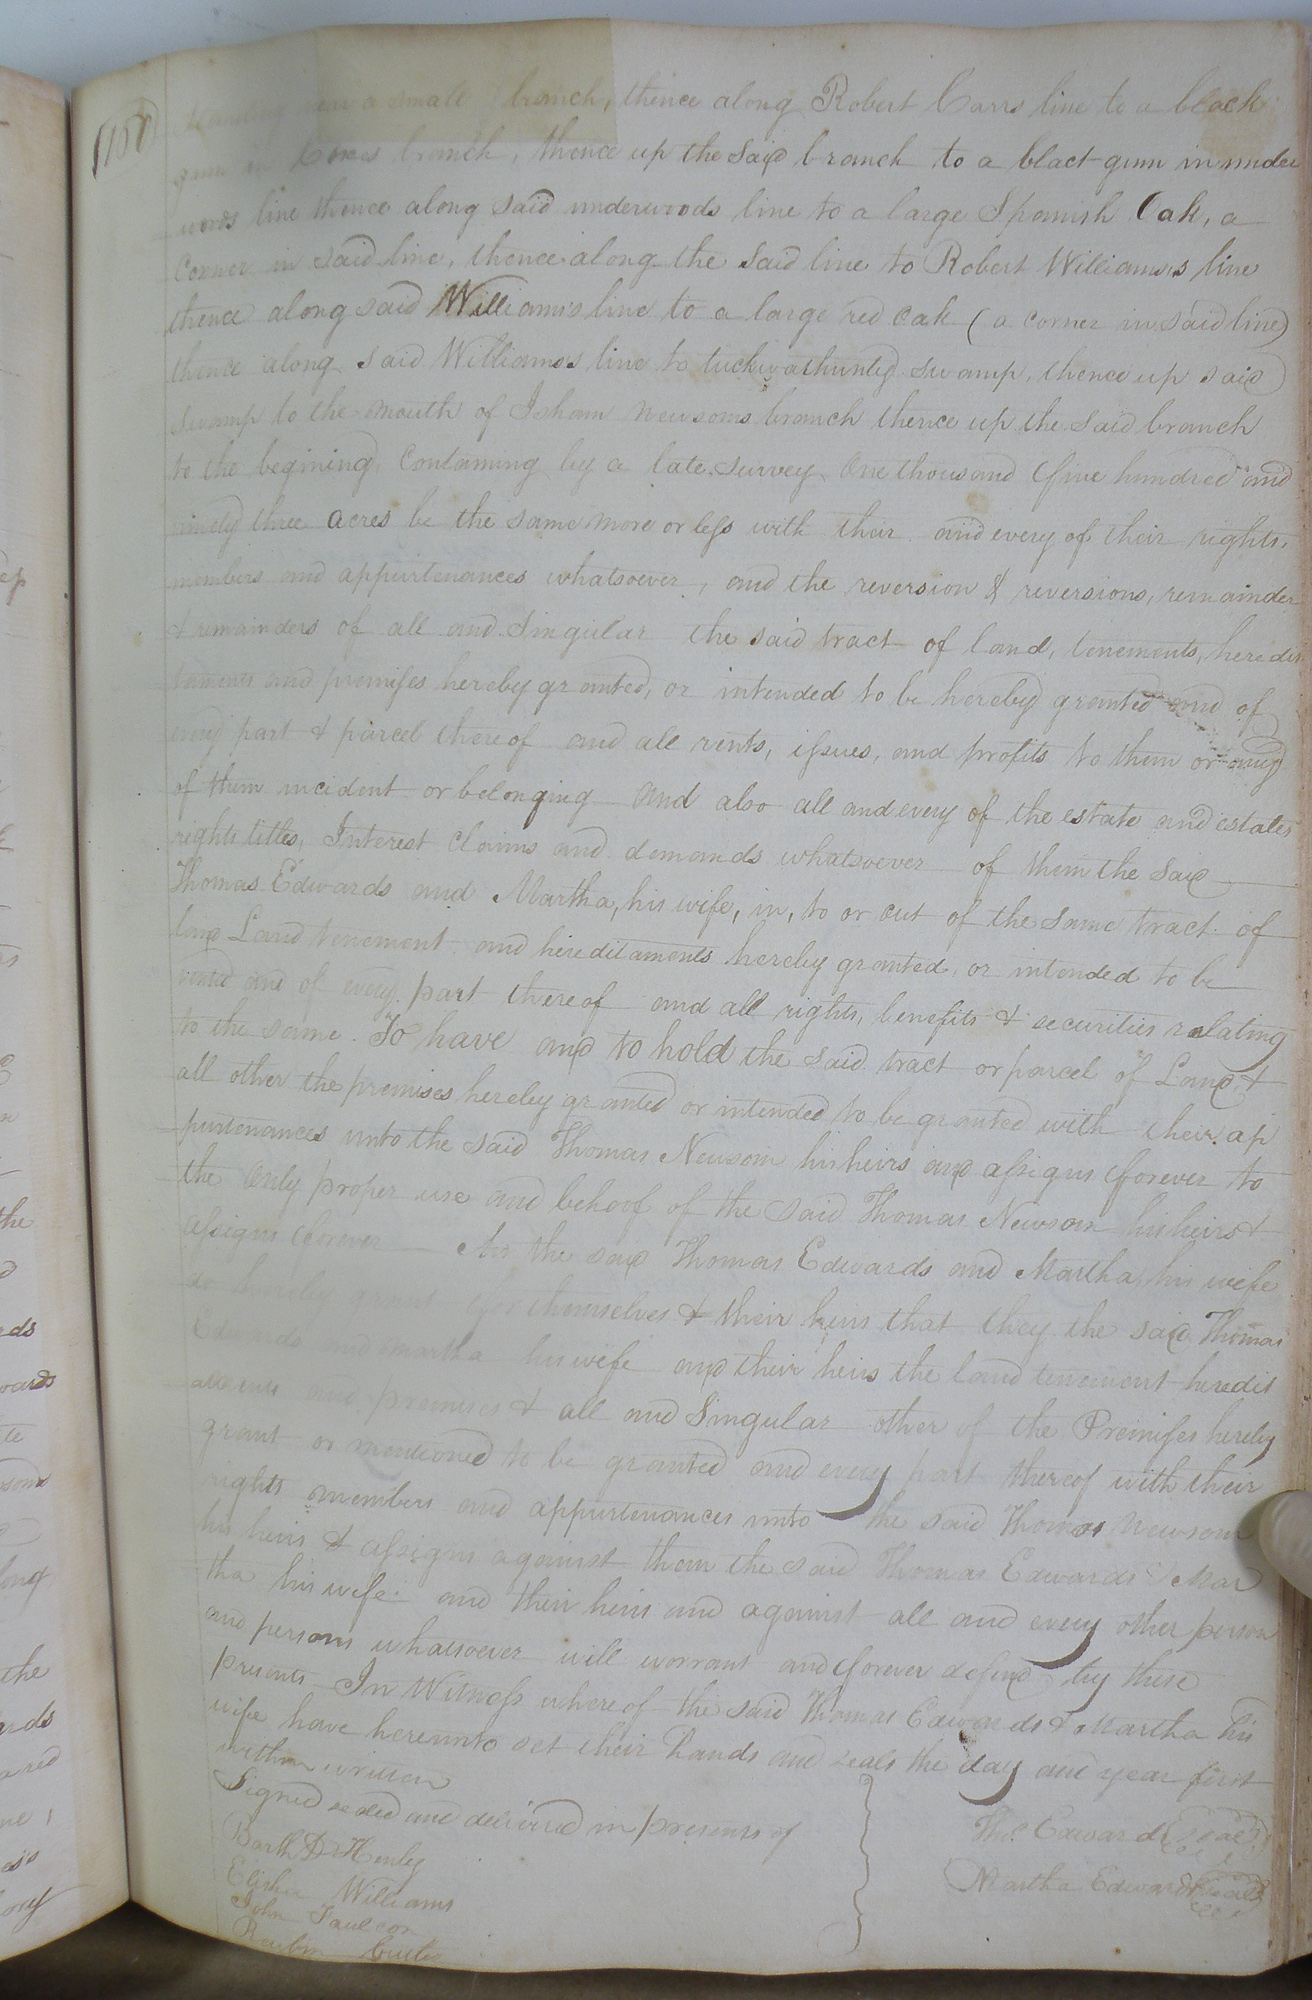 near a small branch, thence along Robert Carrs line to a black
gum in branch, thence up the said branch to a blact gum in under
woods line thence along said underwoods line to a large Spanish Oak, a
Corner in said line, thence along the said line to Robert Williams's line
thence along said Williams's line to a large red oak (a corner in said line)
thence along said Williams's line to swamp, thence up said
Swamp to the mouth of Isham Newsoms branch thence up the said branch
to the begining, Containing by a late survey One thousand five hundred and
ninety three acres be the same more or less with their and every of their rights,
members and appurtenances whatsoever, and the reversion & reversions, remainder
& remainders of all and Singular the said tract of land, tenements, heredit
taments and premises hereby granted, or intended to be hereby granted and of
every part & parcel thereof and all rents, issues, and profits to them or any
of them incident or belonging and also all and every of the estate and estates
rights titles, Interest Claims and demands whatsoever of them the said
Thomas Edwards and Martha, his wife, in, to or out of the same tract of
land Land tenement and hereditaments hereby granted, or intended to be
and of every part thereof and all rights, benefits & securities relating
to the same. To have and to hold the said tract or parcel of Land &
all other the premises hereby granted or intended to be granted with their ap
purtenances unto the said Thomas Newsom his heirs and assigns forever to
the only proper use and behoof of the said Thomas Newsom his heirs &
assigns forever the said Thomas Edwards and Martha his wife
do hereby grant for themselves & their heirs that they the said Thomas
Edwards and Martha his wife and their heirs the land tenement heredit
and premises & all and Singular other of the Premises hereby
grant or mentioned to be granted and every part thereof with their
rights members and appurtenances unto the said Thomas Newsom
his heirs & assigns against them the said Thomas Edwards & Mar
tha his wife and their heirs and against all and every other person
and persons whatsoever will warrant and forever defend by these
presents In Witness whereof the said Thomas Edwards & Martha his
wife have hereunto set their hands and seals the day and year first
within written
Signed sealed and delivered in presents of
Thos. Edwards Seal
Barth D Henley
Martha Edwards Seal
Elisha Williams
John Faulcon